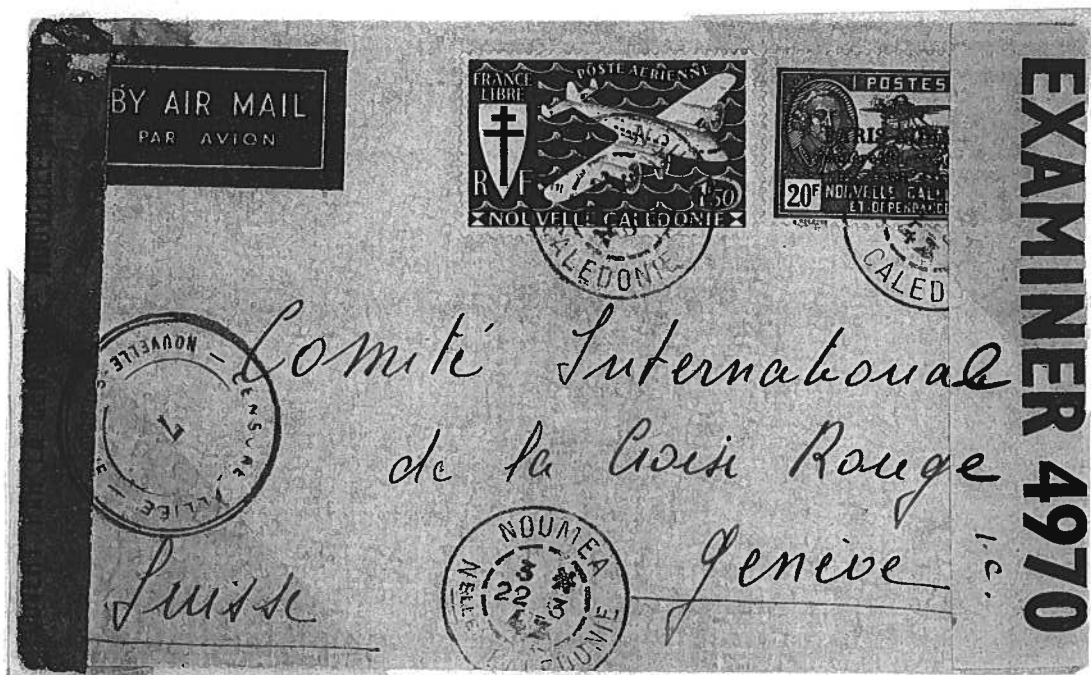 BY AIR MAIL
PAR AVION
FRANCE
LIBRE
POSTE AERIENNE
RF
1F50
NOUVELLE CALÉDONIE
CALEDONIE
POSTES
PARIS
20F
NOUVELLE CALE
ET DEPENDANC
CALED
EXAMINER 4970
I.C.
CENSURE ALLIÉE — NOUVELLE
7
Comité International
de la Croix Rouge
Genève
Suisse
NOUMEA
3
22 3
NELLE CALEDONIE